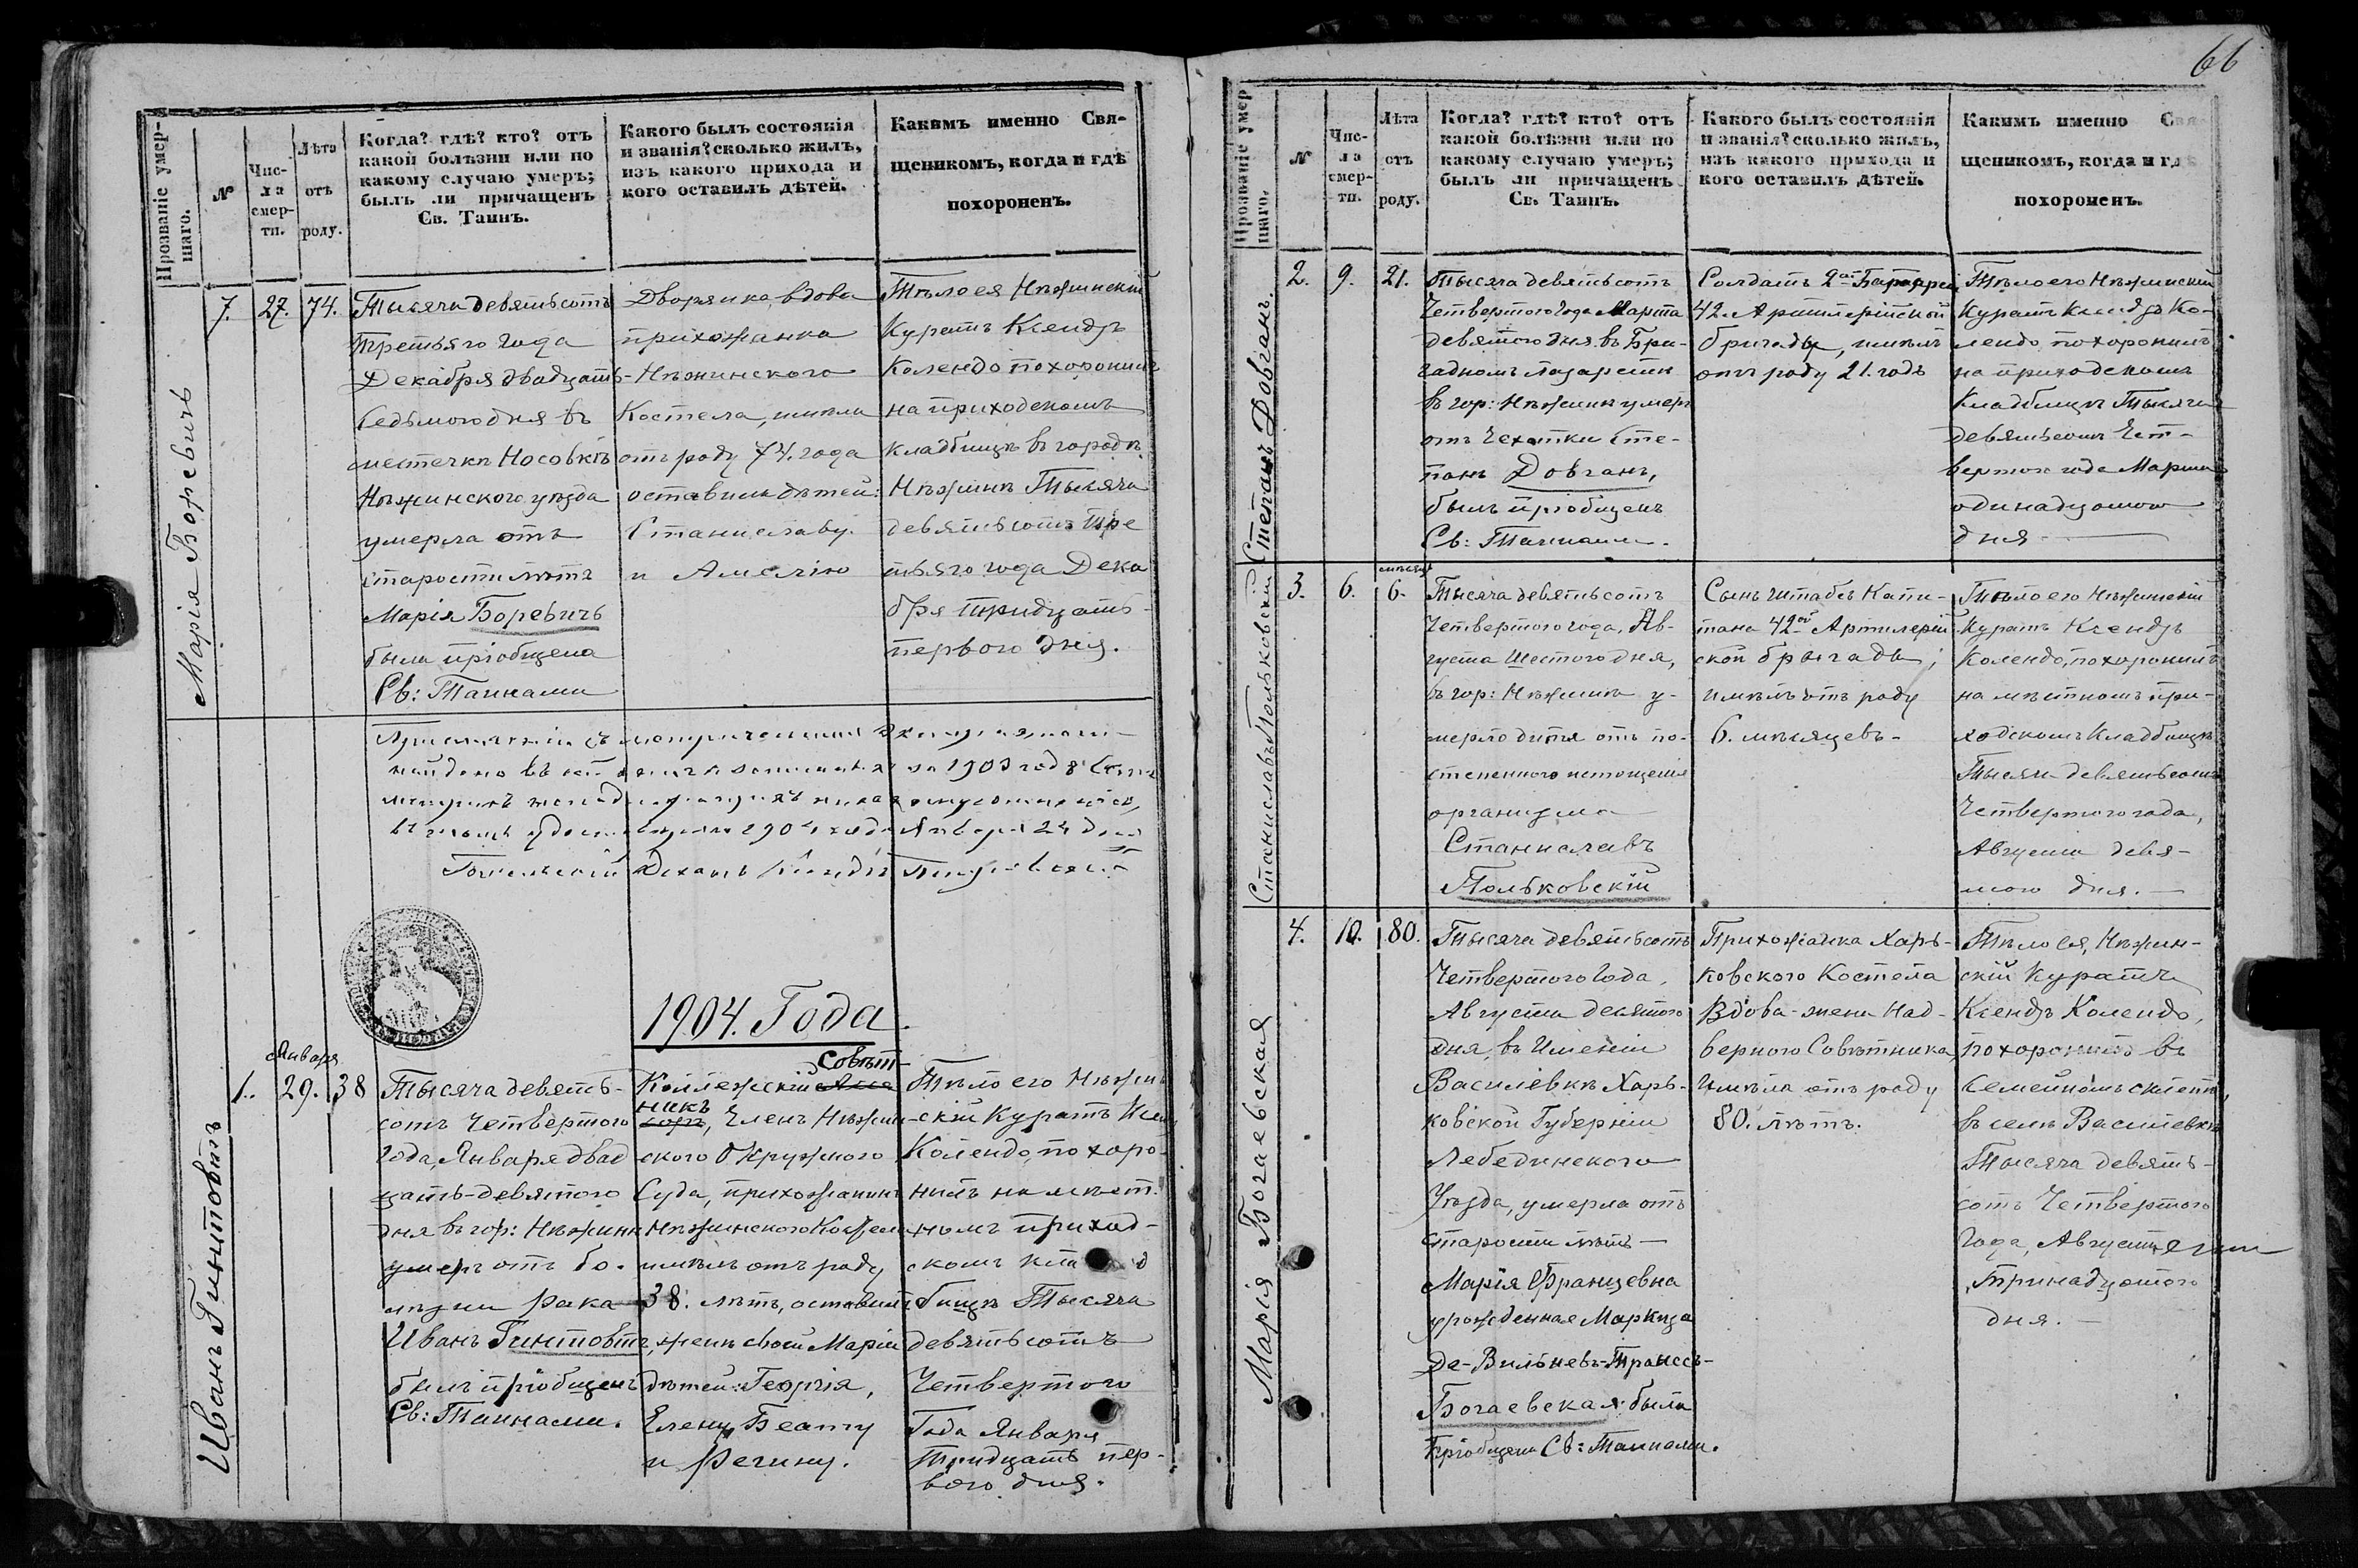 66
Прозваніе умер-
шаго.
№
Чис-
ла
смер-
ти.
Лѣта
отъ
роду.
Когда? гдѣ? кто? отъ
какой болѣзни или по
какому случаю умеръ;
былъ ли причащенъ
Св. Таинъ.
Какого былъ состоянія
и званія? сколько жилъ,
изъ какого прихода и
кого оставилъ дѣтей.
Какимъ именно Свя-
щеникомъ, когда и гдѣ
похороненъ.
Марія Боревичъ
7.
27.
74.
Тысяча девятьсотъ
третьяго года
Декабря двадцать
седьмого дня въ
местечкѣ Носовкѣ
Нѣжинского уѣзда
умерла отъ
старости лѣтъ
Марія Боревичъ
была пріобщена
Св: Таинами
Дворянка, вдова
прихожанка
Нѣжинского
Костела, имѣла
отъ роду 74. года
оставила дѣтей:
Станиславу
и Амелію
Тѣло ея Нѣжинскій
Куратъ Ксендзъ
Колендо похоронилъ
на приходскомъ
кладбищѣ въ городѣ
Нѣжинѣ Тысяча
девятьсотъ тре
тьяго года Дека
бря тридцать
первого дня.
1903 год
1904 года Января 24 дня
Деканъ Ксендзъ
1904. Года
Иванъ Гинтовтъ
1.
Января
29.
38
Тысяча девять-
сотъ четвертого
года, Января двад
цать-девятого
дня въ гор: Нѣжинѣ
умеръ отъ бо-
лѣзни рака
Иванъ Гинтовтъ,
былъ пріобщенъ
Св: Таинами.
Совѣт-
Коллежскій Ассе
никъ
соръ, Членъ Нѣжин-
ского Окружного
Суда, прихожанинъ
Нѣжинского Костела
имѣлъ отъ роду
38. лѣтъ, оставилъ
женѣ своей Маріи
дѣтей: Георгія,
Елену, Беату
и Регину.
Тѣло его Нѣжин
скій Куратъ Ксен
Колендо, похоро
нилъ на мѣст-
номъ приход-
скомъ клад
бищѣ Тысяча
девятьсотъ
Четвертого
Года Января
Тридцать пер-
вого дня.
Прозваніе умер
шаго.
№
Чис-
ла
смер-
ти.
Лѣта
отъ
роду.
Когда? гдѣ? кто? отъ
какой болѣзни или по
какому случаю умеръ;
былъ ли причащенъ
Св. Таинъ.
Какого былъ состоянія
и званія? сколько жилъ,
изъ какого прихода и
кого оставилъ дѣтей.
Какимъ именно Свя
щеникомъ, когда и гдѣ
похороненъ.
Степанъ Довганъ.
2.
9.
21.
Тысяча девятьсотъ
Четвертого года Марта
девятого дня въ Бри-
гадномъ лазаретѣ
въ гор: Нѣжинѣ умеръ
отъ Чехотки Сте-
панъ Довганъ,
былъ пріобщенъ
Св: Таинами.
Солдатъ 2ой Батареи
42. Артилерійской
бригады, имѣлъ
отъ роду 21. годъ
Тѣло его Нѣжинскій
Куратъ Ксендзъ Ко-
лендо похоронилъ
на приходскомъ
Кладбищѣ Тысяча
девятьсотъ Чет-
вертого года Марта
одинадцатого
дня
Станиславъ Польковскій
3.
6.
мѣсяц
6.
Тысяча девятьсотъ
Четвертого года, Ав-
густа Шестого дня,
въ гор: Нѣжинѣ у-
мерло дитя отъ по-
степенного истощенія
организма
Станиславъ
Польковскій
Сынъ Штабсъ Капи-
тана 42ой Артилерій
ской бригады,
имѣлъ отъ роду
6. мѣсяцевъ-
Тѣло его Нѣжинскій
Куратъ Ксендзъ
Колендо, похоронилъ
на мѣстномъ при-
ходскомъ Кладбищѣ
Тысяча девятьсотъ
Четвертого года,
Августа девя-
того дня.
Марія Богаевская
4.
10.
80.
Тысяча девятьсотъ
Четвертого Года,
Августа девятого
дня, въ Имѣніи
Василевкѣ Харь-
ковской Губерніи
Лебединского
Уѣзда, умерла отъ
старости лѣтъ
Марія Францевна
урожденная Маркиза
Де-Вильневъ-Трансъ-
Богаевская была
пріобщена Св: Таинами.
Прихожанка Харь-
ковского Костела
Вдова-жена Над-
ворного Совѣтника,
имѣла отъ роду
80. лѣтъ.
Тѣло ея, Нѣжин-
скій Куратъ
Ксендзъ Колендо,
похоронилъ въ
Семейномъ склепѣ,
въ селѣ Василевкѣ
Тысяча девять-
сотъ Четвертого
Года, Августа
Тринадцатого
дня.